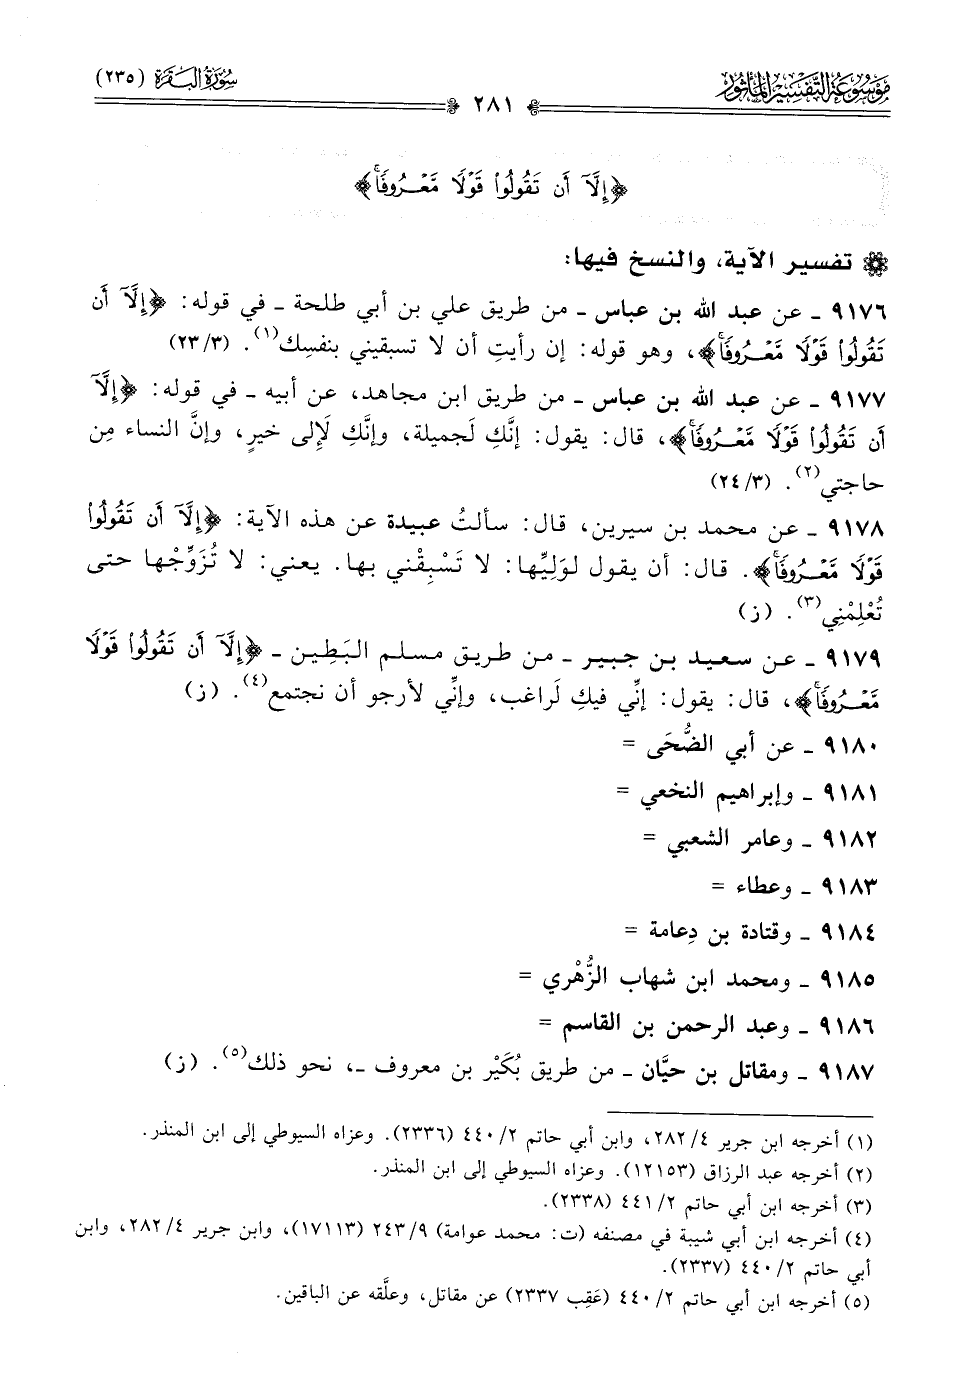 موسوعة التفسير المأثور
٢٨١
سورة البقرة (٢٣٥)
﴿إِلَّآ أَن تَقُولُوا۟ قَوْلًا مَّعْرُوفًاۚ﴾
تفسير الآية، والنسخ فيها:
٩١٧٦ ـ عن عبد الله بن عباس ـ من طريق علي بن أبي طلحة ـ في قوله: ﴿إِلَّآ أَن
تَقُولُوا۟ قَوْلًا مَّعْرُوفًاۚ﴾، وهو قوله: إن رأيتِ أن لا تسبقيني بنفسِك(١). (٢٣/٣)
٩١٧٧ ـ عن عبد الله بن عباس ـ من طريق ابن مجاهد، عن أبيه ـ في قوله: ﴿إِلَّآ
أَن تَقُولُوا۟ قَوْلًا مَّعْرُوفًاۚ﴾، قال: يقول: إنَّكِ لَجميلة، وإنَّكِ لَإلى خيرٍ، وإنَّ النساء مِن
حاجتي(٢). (٢٤/٣)
٩١٧٨ ـ عن محمد بن سيرين، قال: سألتُ عبيدة عن هذه الآية: ﴿إِلَّآ أَن تَقُولُوا۟
قَوْلًا مَّعْرُوفًاۚ﴾. قال: أن يقول لوَلِيِّها: لا تَسْبِقْني بها. يعني: لا تُزَوِّجْها حتى
تُعْلِمْنِي(٣). (ز)
٩١٧٩ ـ عن سعيد بن جبير ـ من طريق مسلم البَطِين ـ ﴿إِلَّآ أَن تَقُولُوا۟ قَوْلًا
مَّعْرُوفًاۚ﴾، قال: يقول: إنِّي فيكِ لَراغب، وإنِّي لأرجو أن نجتمع(٤). (ز)
٩١٨٠ ـ عن أبي الضُّحَى =
٩١٨١ ـ وإبراهيم النخعي =
٩١٨٢ ـ وعامر الشعبي =
٩١٨٣ ـ وعطاء =
٩١٨٤ ـ وقتادة بن دِعامة =
٩١٨٥ ـ ومحمد ابن شهاب الزُّهْري =
٩١٨٦ ـ وعبد الرحمن بن القاسم =
٩١٨٧ ـ ومقاتل بن حيَّان ـ من طريق بُكَيْر بن معروف ـ، نحو ذلك(٥). (ز)
(١) أخرجه ابن جرير ٢٨٢/٤، وابن أبي حاتم ٤٤٠/٢ (٢٣٣٦). وعزاه السيوطي إلى ابن المنذر.
(٢) أخرجه عبد الرزاق (١٢١٥٣). وعزاه السيوطي إلى ابن المنذر.
(٣) أخرجه ابن أبي حاتم ٤٤١/٢ (٢٣٣٨).
(٤) أخرجه ابن أبي شيبة في مصنفه (ت: محمد عوامة) ٢٤٣/٩ (١٧١١٣)، وابن جرير ٢٨٢/٤، وابن
أبي حاتم ٤٤٠/٢ (٢٣٣٧).
(٥) أخرجه ابن أبي حاتم ٤٤٠/٢ (عَقِب ٢٣٣٧) عن مقاتل، وعلَّقه عن الباقين.